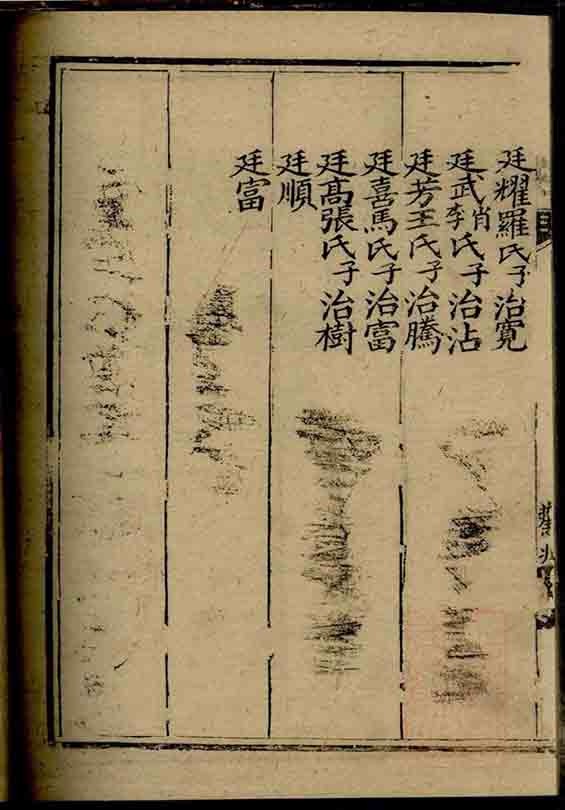 廷耀羅氏子治寬
廷武肖李氏子治沾
廷芳王氏子治騰
廷喜馬氏子治富
廷高張氏子治樹
廷順
廷富